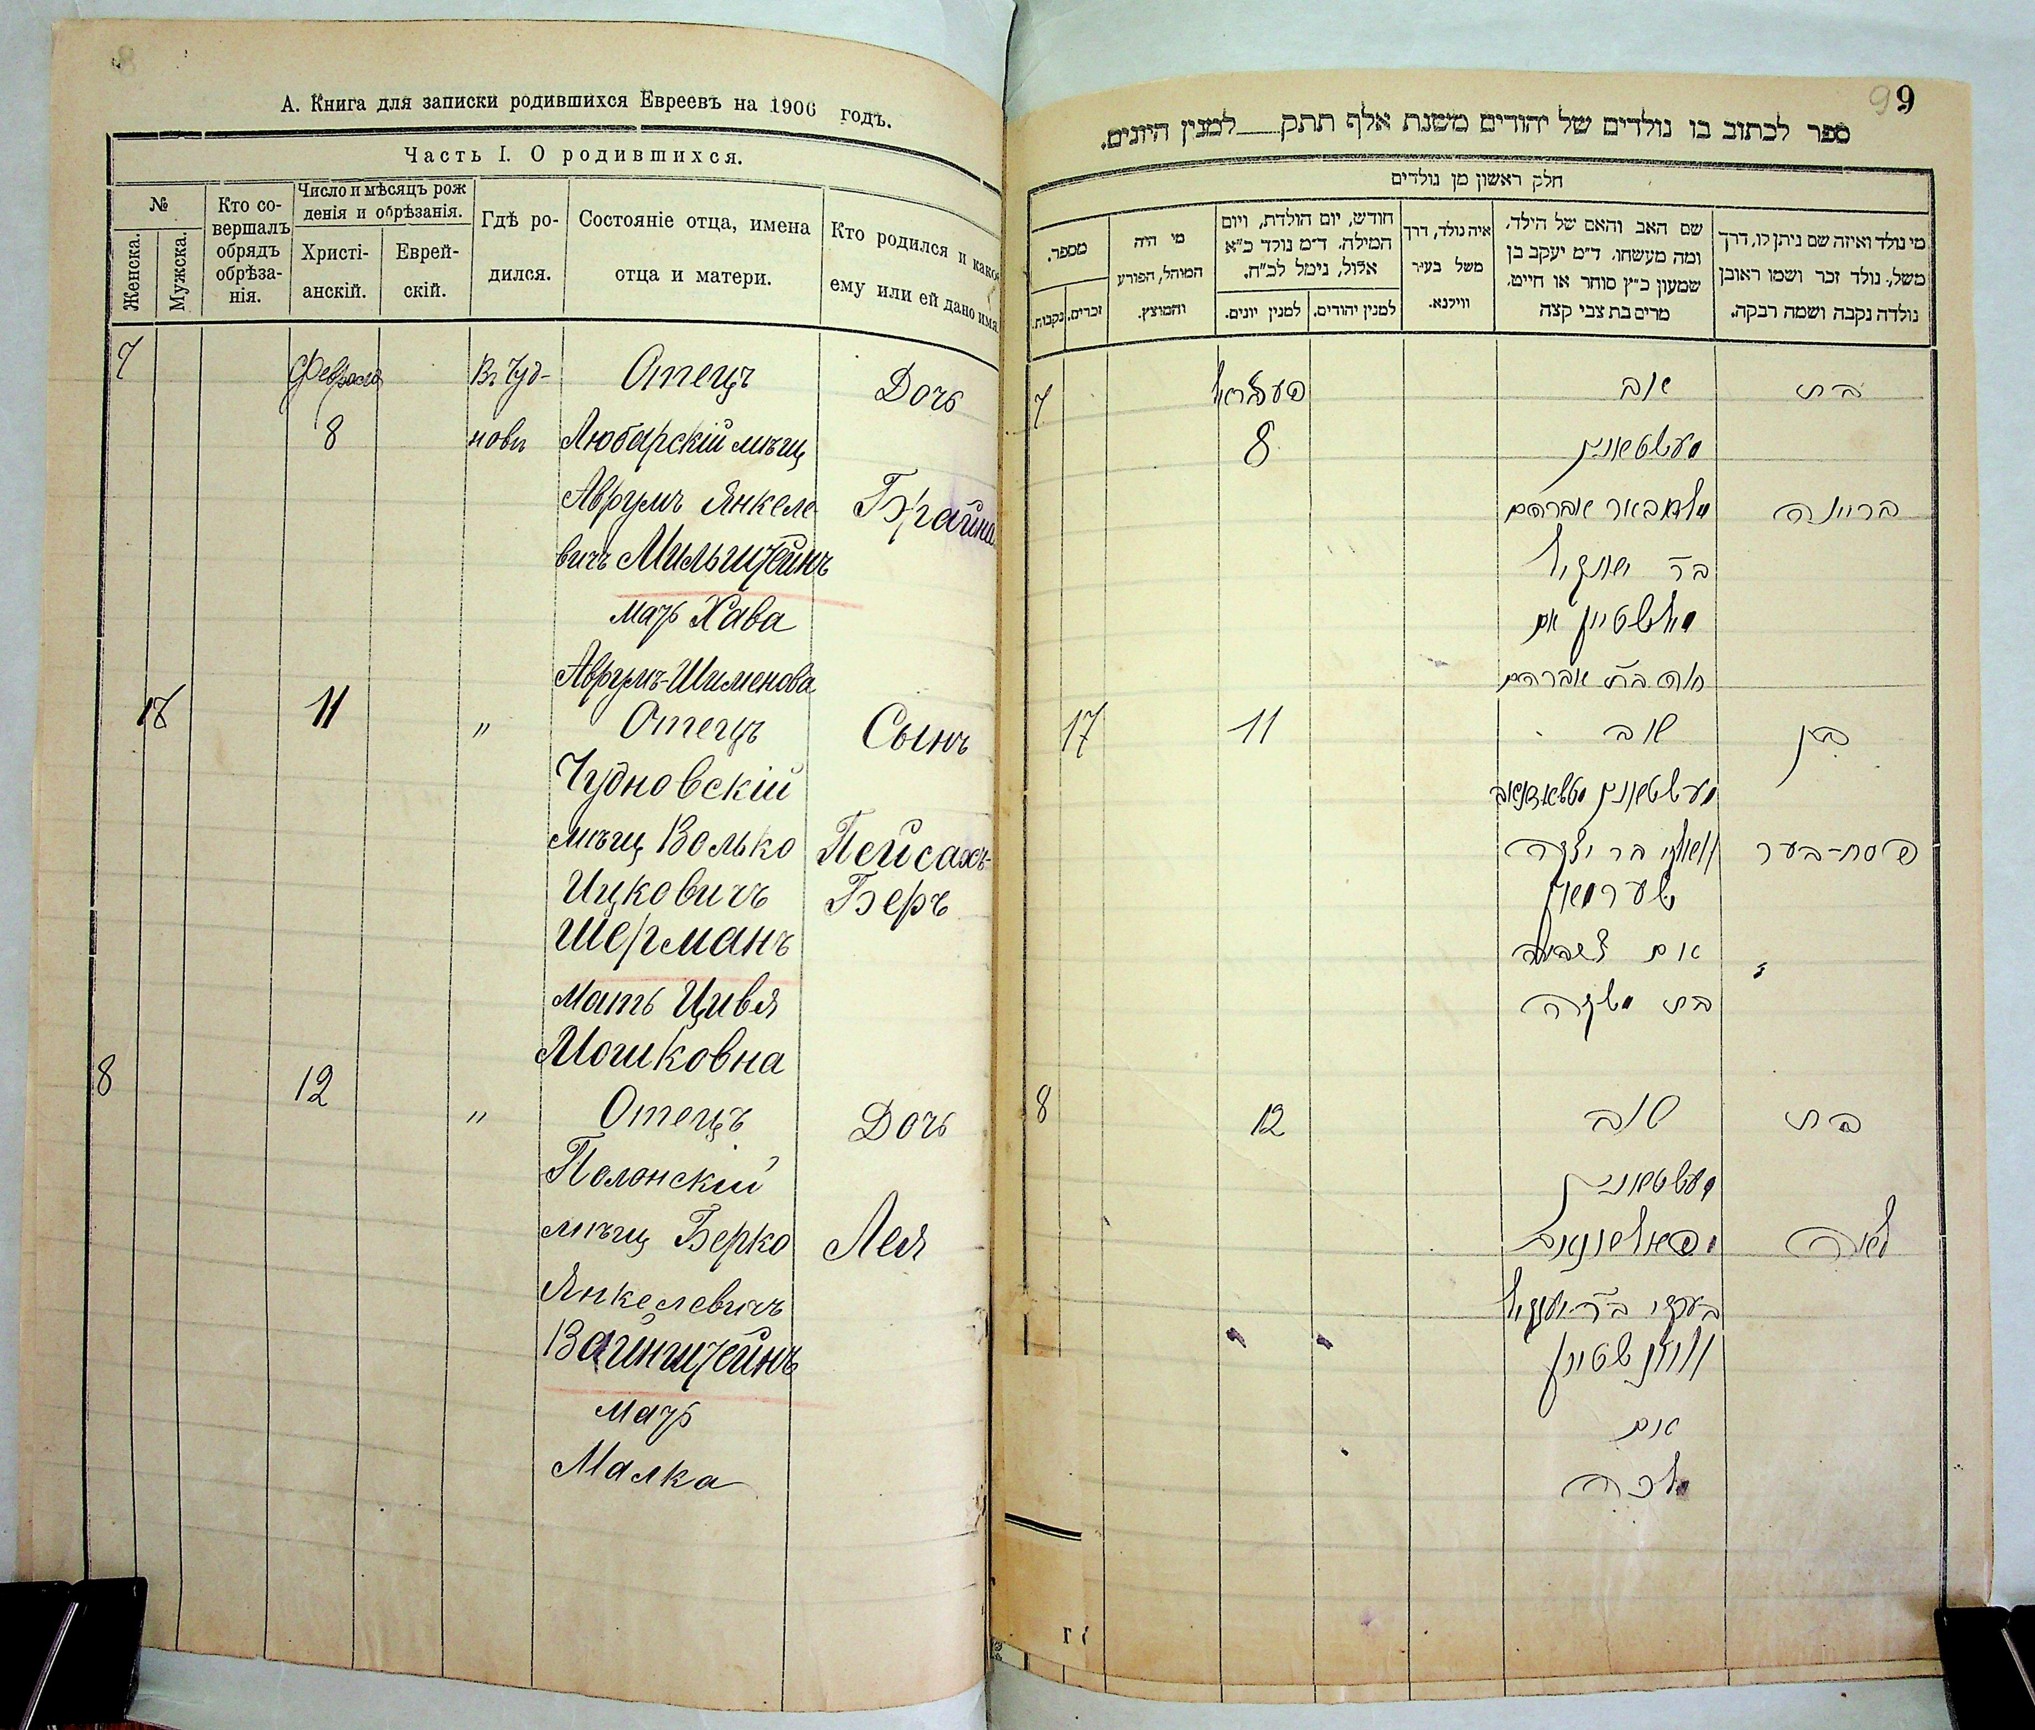 А. Книга для записки родившихся Евреевъ на 1906 годъ.
Часть I. О родившихся.
№
Женска.
Мужска.
Кто со-
вершалъ
обрядъ
обрѣза-
нія.
Число и мѣсяцъ рож
денія и обрѣзанія.
Христі-
анскій.
Еврей-
скій.
Гдѣ ро-
дился.
Состояніе отца, имена
отца и матери.
Кто родился и какое
ему или ей дано имя
7 Февраля Въ Чуд- Отецъ Дочь
8 новѣ Любарскій мѣщ
Аврумъ Янкеле- Брайна
вичъ Мильштейнъ
мать Хава
Аврумъ-Шименова
11 " Отецъ Сынъ
Чудновскій
мѣщ Волько Пейсахъ-
Ицковичъ Беръ
Шерманъ
мать Цивья
Мошковна
8 12 " Отецъ Дочь
Полонскій
мѣщ Берко Лея
Янкелевичъ
Вайнштейнъ
мать
Малка
99
ספר לכתוב בו נולדים של יהודים משנת אלף תתק למנין היונים.
חלק ראשון מן נולדים
מי נולד ואיזה שם ניתן לו, דרך
משל, נולד זכר ושמו ראובן
נולדה נקבה ושמה רבקה.
שם האב והאם של הילד,
ומה מעשהו, ד״מ יעקב בן
שמעון כ״ץ סוחר או חייט,
מרים בת צבי קצה
איה נולד, דרך
משל בעיר
ווילנא.
חודש, יום הולדת, ויום
המילה, ד״מ נולד כ״א
אלול, נימל לכ״ח.
למנין יהודים.
למנין יונים.
מי היה
המוהל, הפורע
והמוצץ.
מספר.
זכרים.
נקבות.
בת אב פעבראל 7
מעשטשאנין 8
בריינה אברהם
בר יאנקיל
מילשטיין אם
חוה בת אברהם
בן אב 11 17
מעשטשאנין
פסח-בער בר יצקה
שערמאן
אם
בת משקה
בת אב 12 8
מעשטשאנין
לאה
בערקי בר יאנקיל
וויינשטיין
אם
מלכה